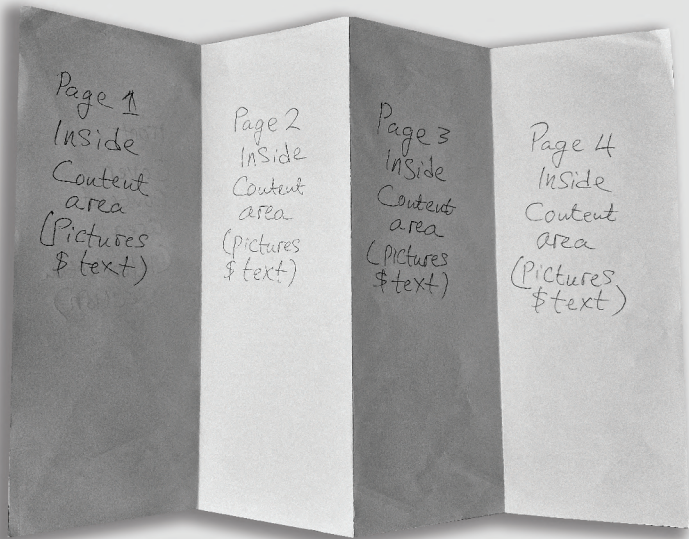 Page 1
Inside
Content
area
(Pictures
$ text)
Page 2
Inside
Content
area
(pictures
$ text)
Page 3
Inside
Content
area
(pictures
$ text)
Page 4
Inside
Content
area
(Pictures
$ text)